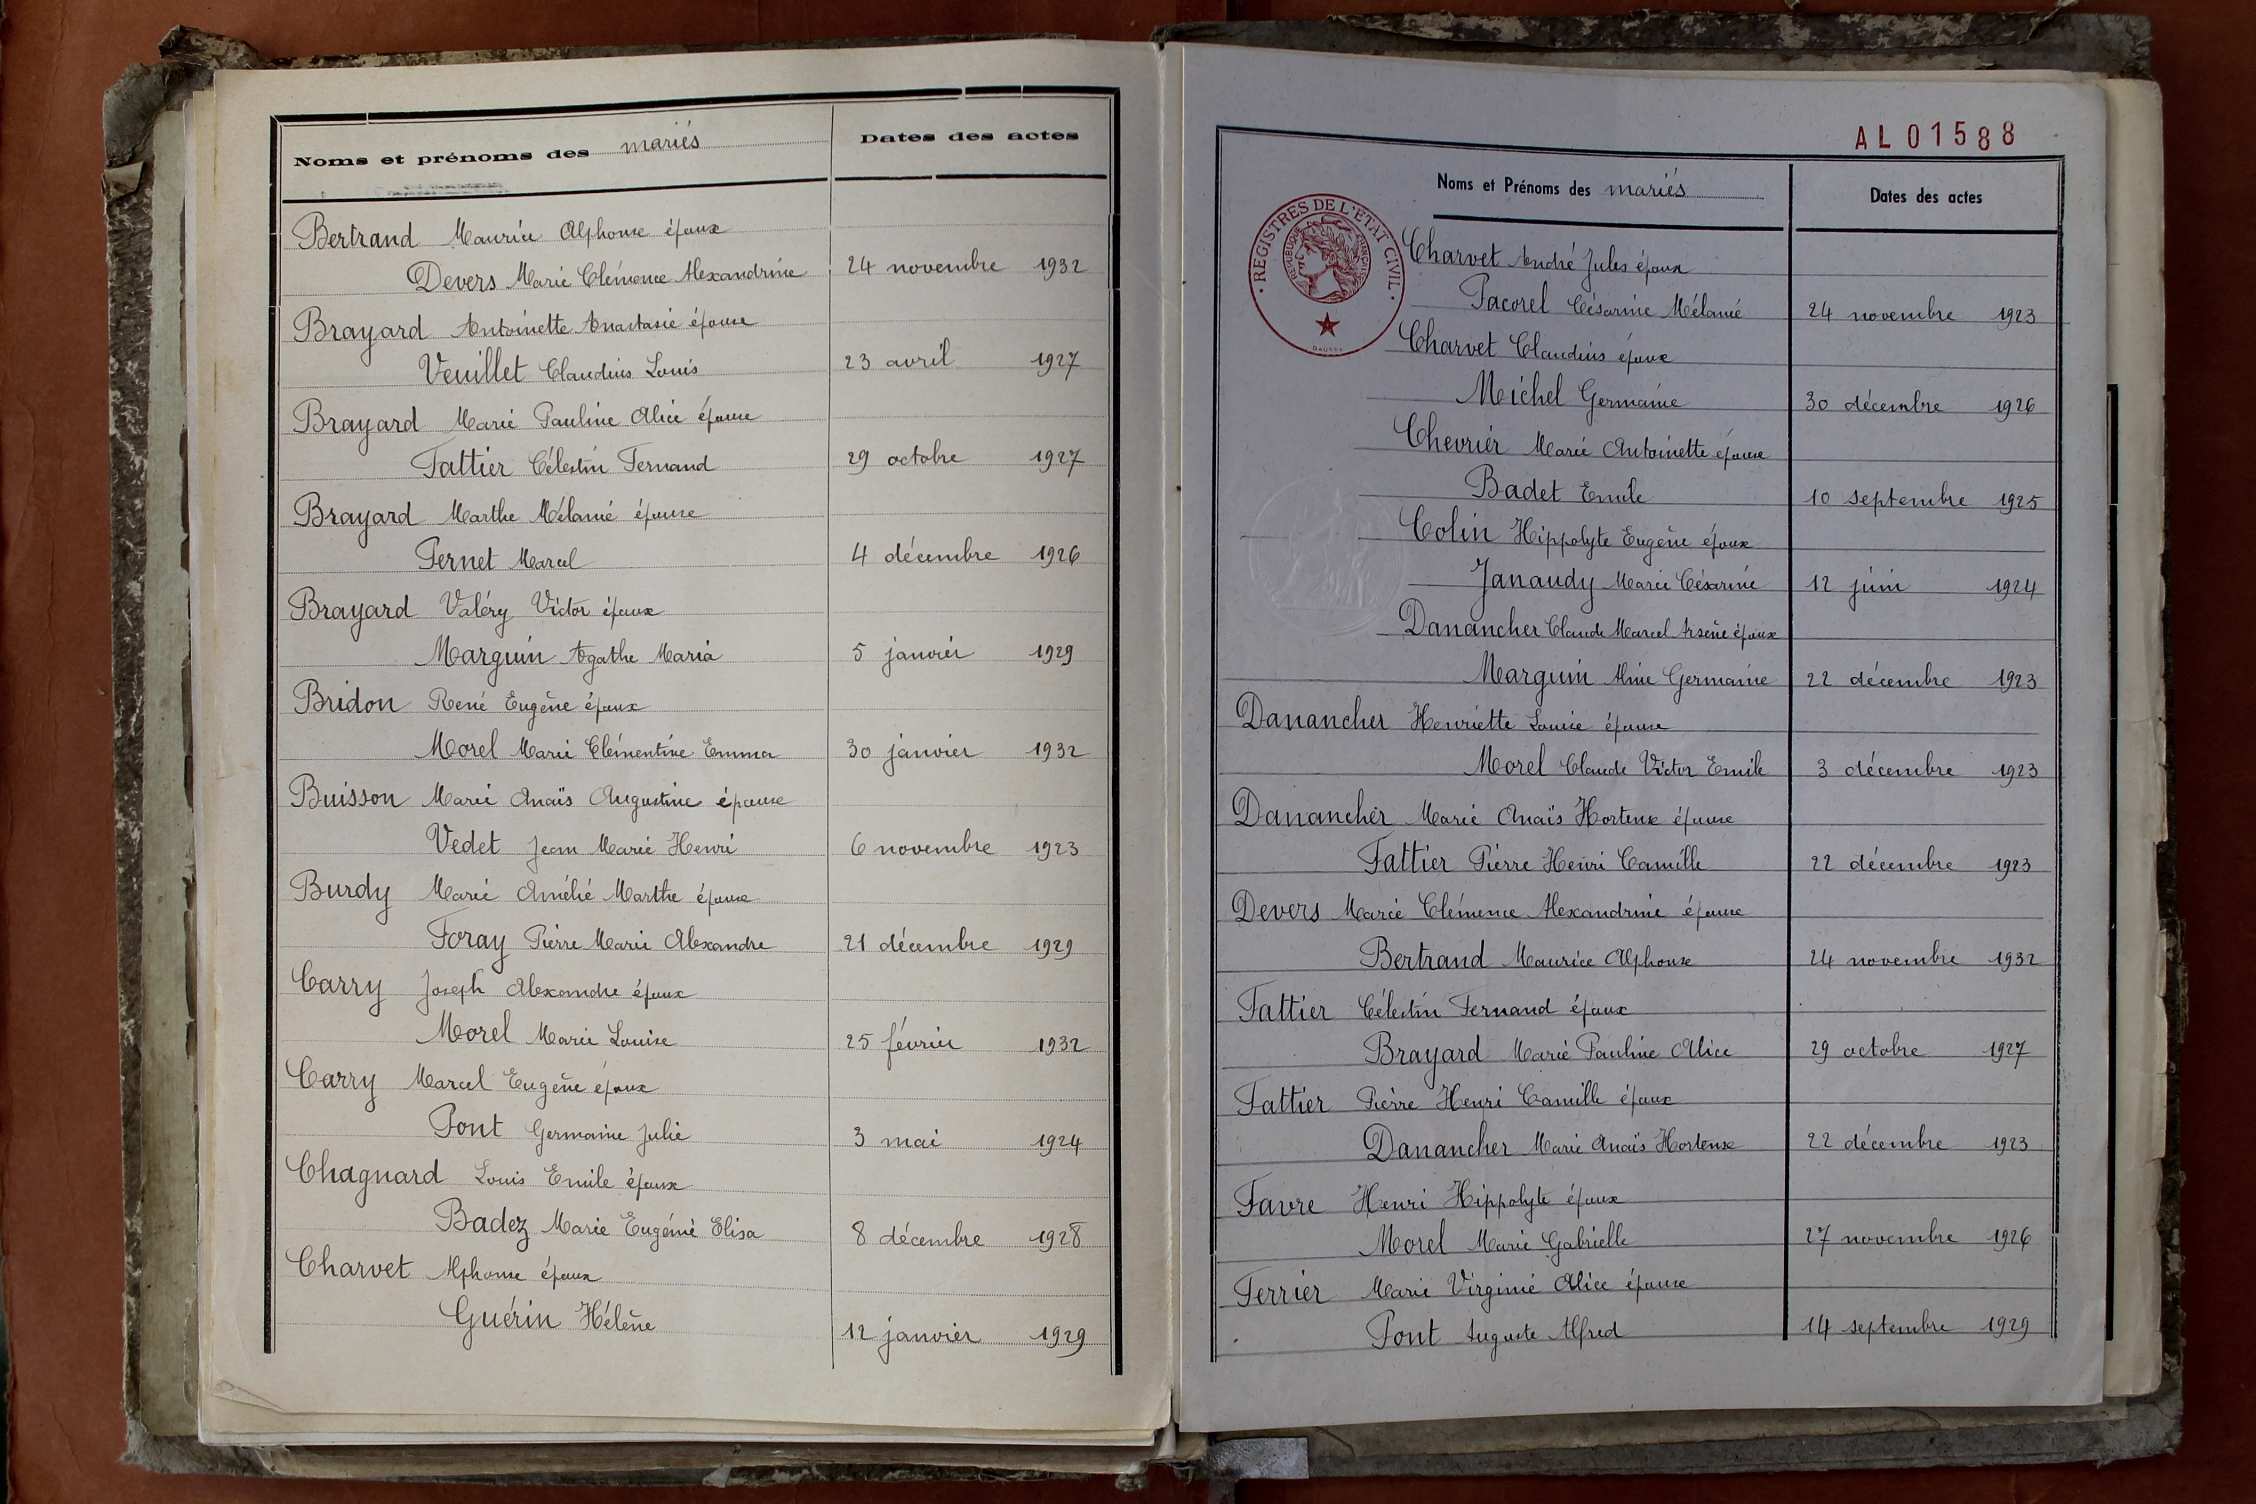 Noms et prénoms des mariés
Dates des actes
Bertrand Maurice Alphonse époux
Devers Marie Clémence Alexandrine 24 novembre 1932
Brayard Antoinette Anastasie épouse
Veuillet Claudius Louis 23 avril 1927
Brayard Marie Pauline Alice épouse
Fattier Célestin Fernand 29 octobre 1927
Brayard Marthe Mélanie épouse
Pernet Marcel 4 décembre 1926
Brayard Valéry Victor époux
Marguin Agathe Maria 5 janvier 1929
Bridon René Eugène époux
Morel Marie Clémentine Emma 30 janvier 1932
Buisson Marie Anaïs Augustine épouse
Vedet Jean Marie Henri 6 novembre 1923
Burdy Marie Amélie Marthe épouse
Foray Pierre Marie Alexandre 21 décembre 1929
Carry Joseph Alexandre époux
Morel Marie Louise 25 février 1932
Carry Marcel Eugène époux
Pont Germaine Julie 3 mai 1924
Chagnard Louis Emile époux
Badez Marie Eugénie Elisa 8 décembre 1928
Charvet Alphonse époux
Guérin Hélène 12 janvier 1929
AL01588
Noms et Prénoms des mariés
Dates des actes
REGISTRES DE L'ETAT CIVIL
REPUBLIQUE FRANÇAISE
Charvet André Jules époux
Pacorel Césarine Mélanie 24 novembre 1923
Charvet Claudius époux
Michel Germaine 30 décembre 1926
Chevrier Marie Antoinette épouse
Badet Emile 10 septembre 1925
Colin Hippolyte Eugène époux
Janaudy Marie Césarine 12 juin 1924
Danancher Claude Marcel Arsène époux
Marguin Aline Germaine 22 décembre 1923
Danancher Henriette Louise épouse
Morel Claude Victor Emile 3 décembre 1923
Danancher Marie Anaïs Hortense épouse
Fattier Pierre Henri Camille 22 décembre 1923
Devers Marie Clémence Alexandrine épouse
Bertrand Maurice Alphonse 24 novembre 1932
Fattier Célestin Fernand époux
Brayard Marie Pauline Alice 29 octobre 1927
Fattier Pierre Henri Camille époux
Danancher Marie Anaïs Hortense 22 décembre 1923
Favre Henri Hippolyte époux
Morel Marie Gabrielle 27 novembre 1926
Ferrier Marie Virginie Alice épouse
Pont Auguste Alfred 14 septembre 1929